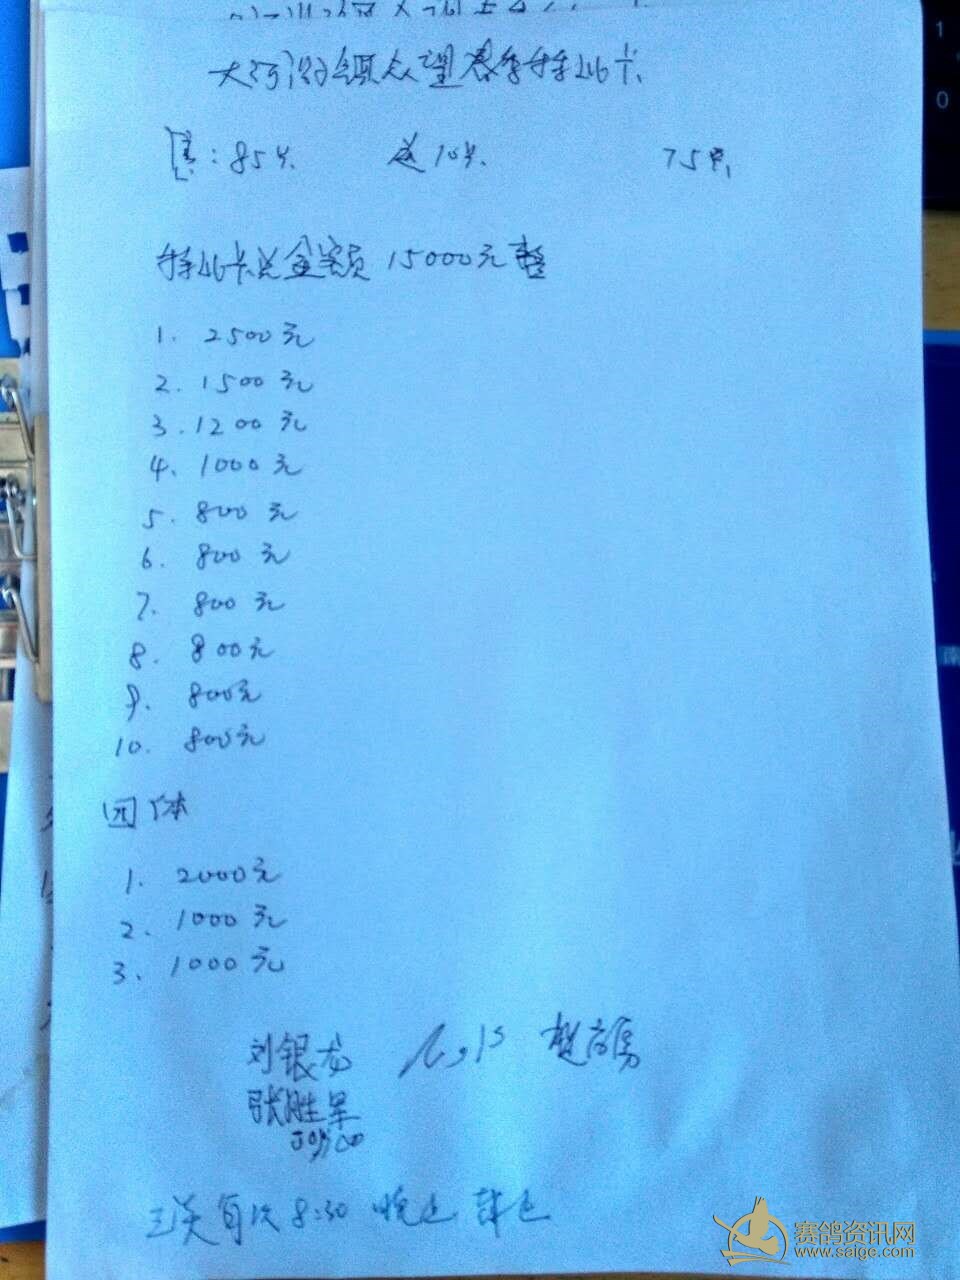 众望春季特比卡
售:85 送10 75
特比卡总金额15000元整
1. 2500元
2. 1500元
3. 1200元
4. 1000元
5. 800元
6. 800元
7. 800元
8. 800元
9. 800元
10. 800元
团体
1. 2000元
2. 1000元
3. 1000元
刘银龙
张胜
三关 8:30
赛鸽资讯网
www.saigc.com